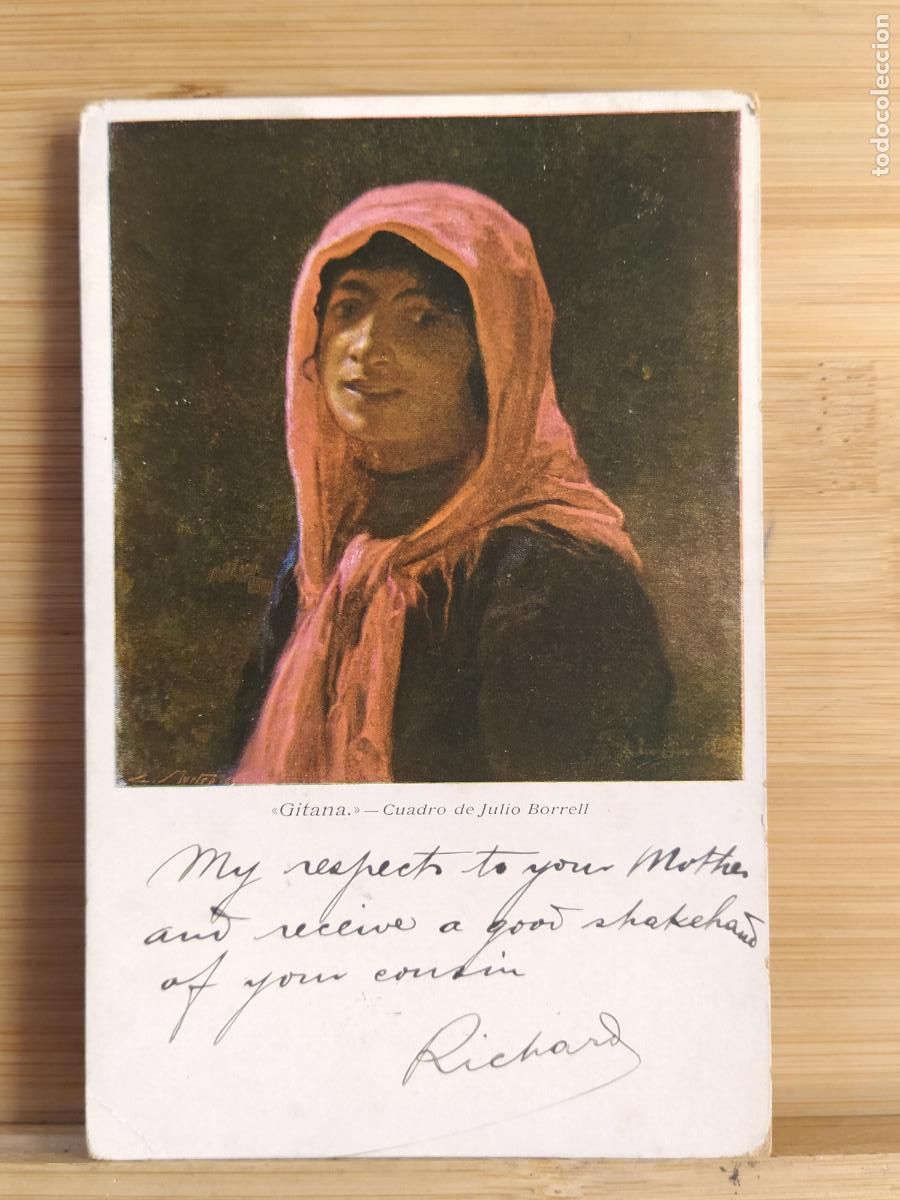 todocoleccion
«Gitana.» — Cuadro de Julio Borrell
My respects to your Mother
and receive a good shakehand
of your cousin
Richard